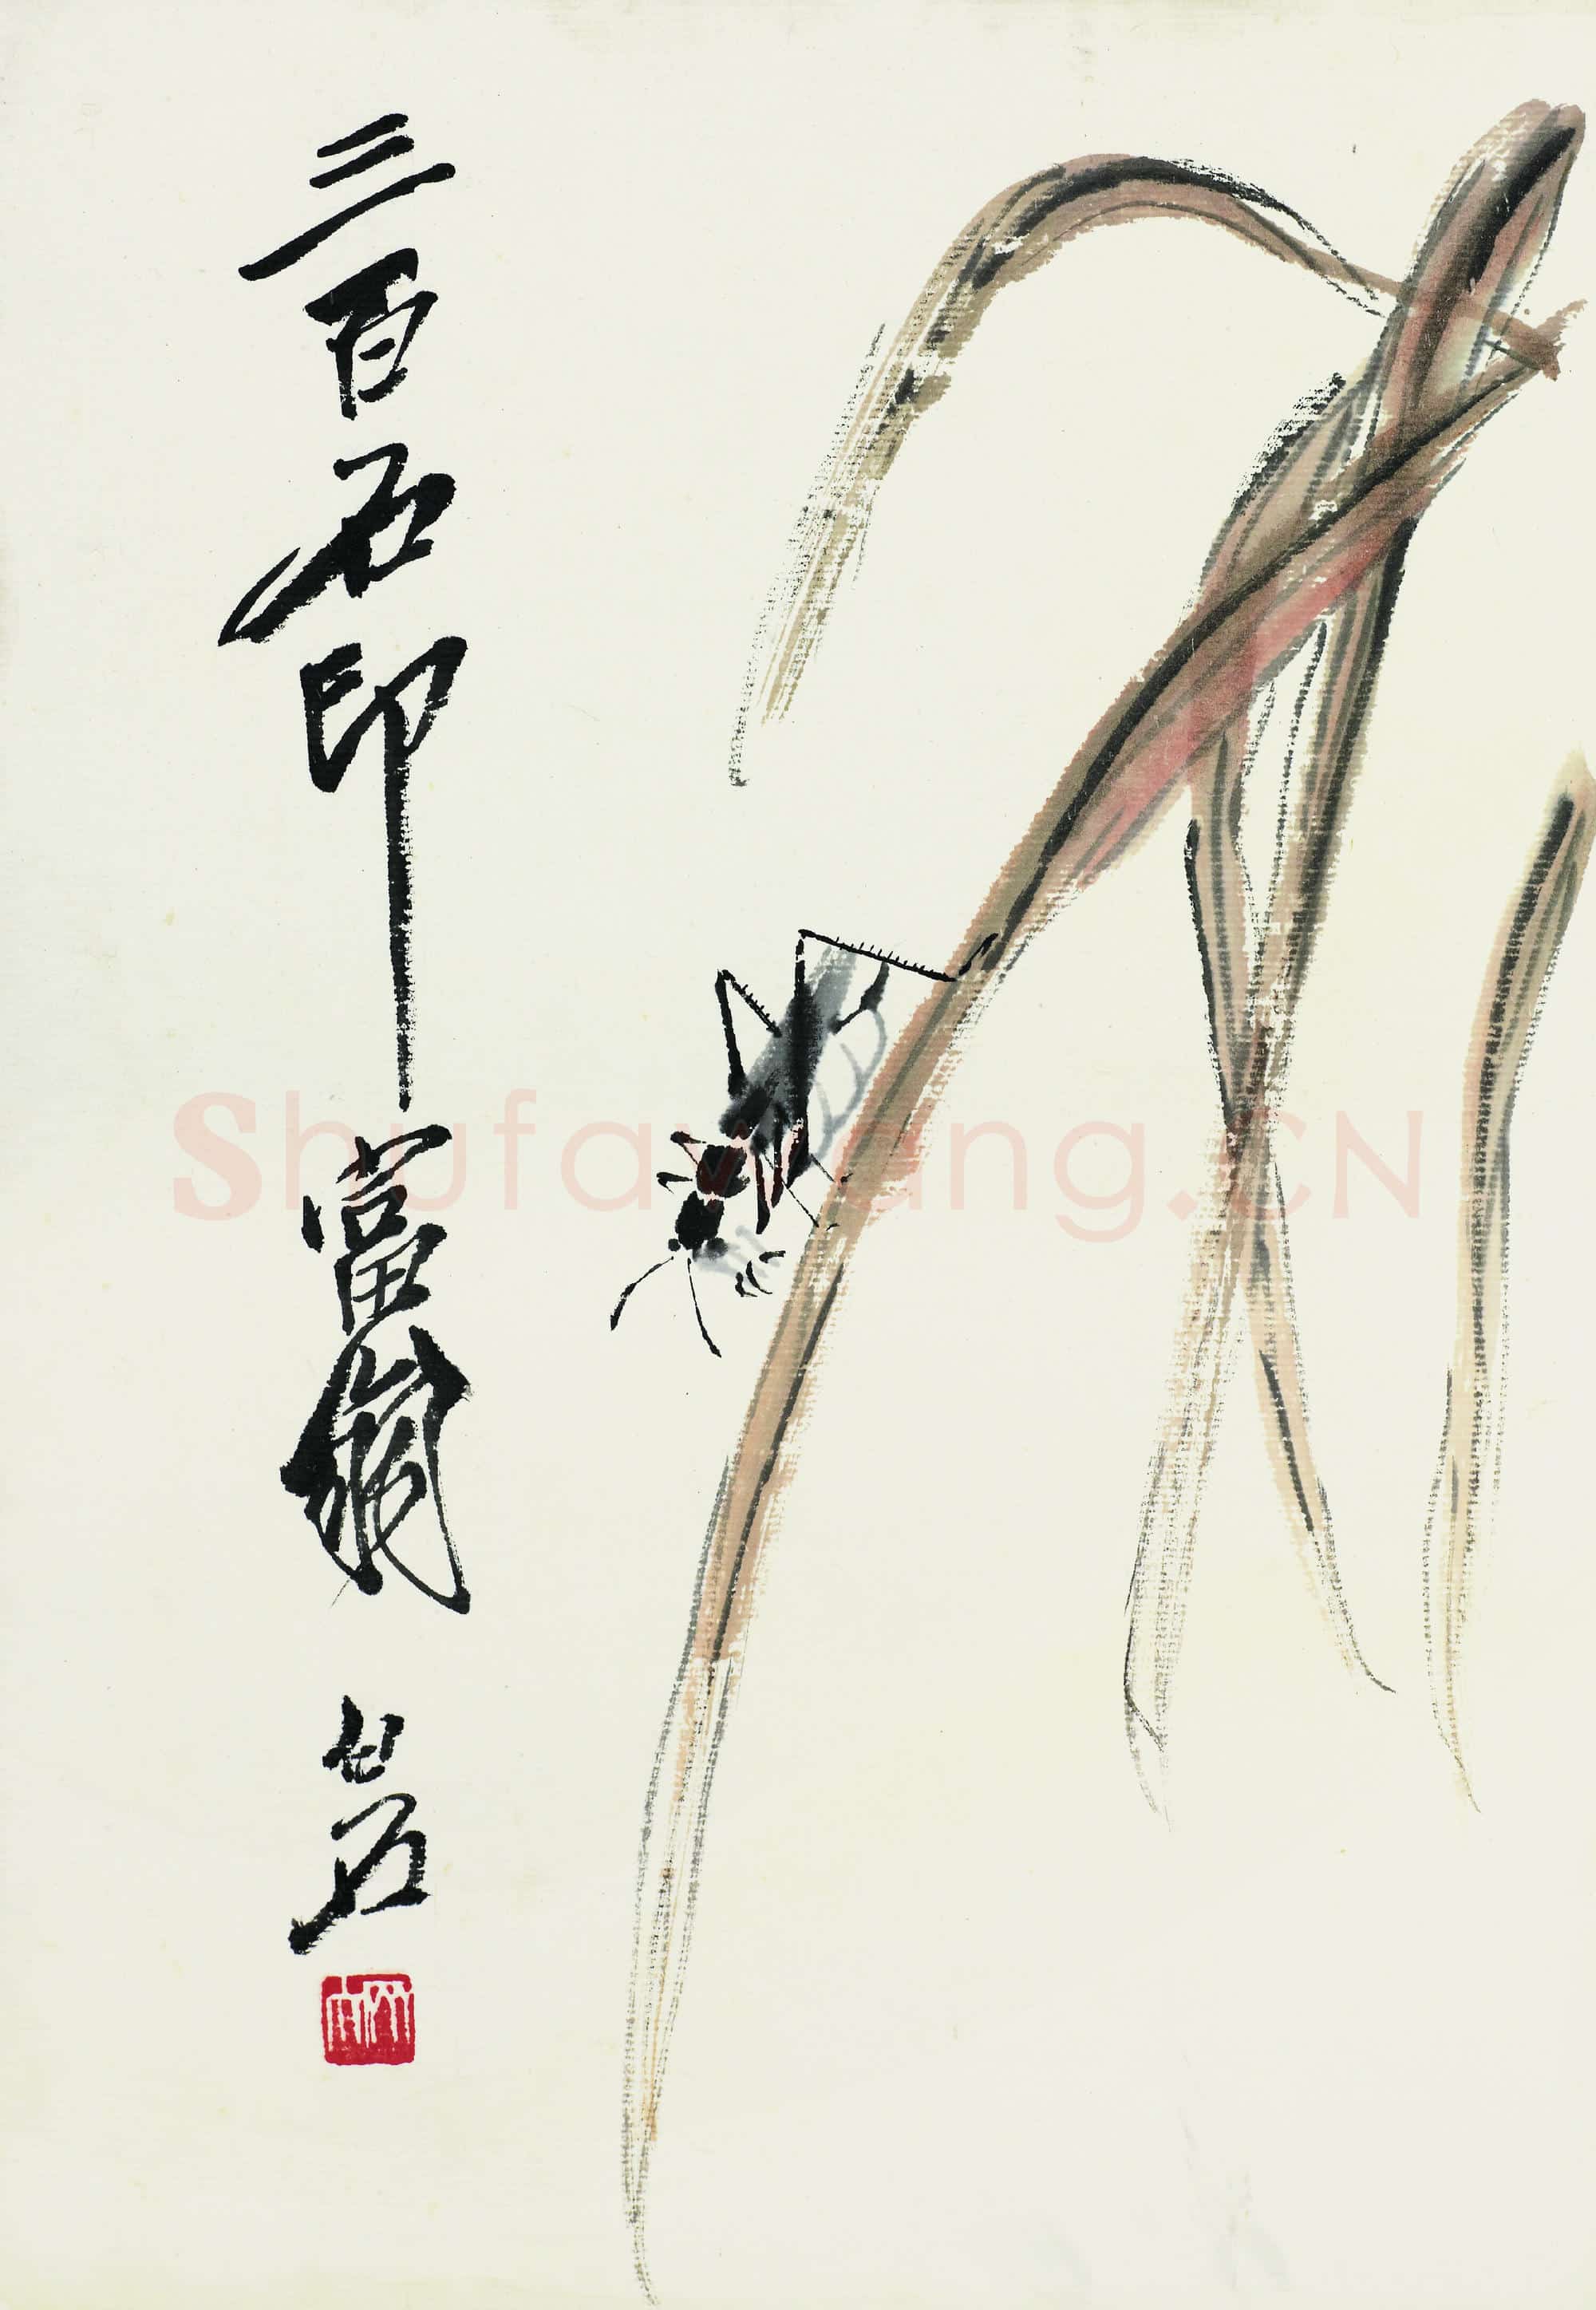 三百石印富翁 白石
Shufawang.CN